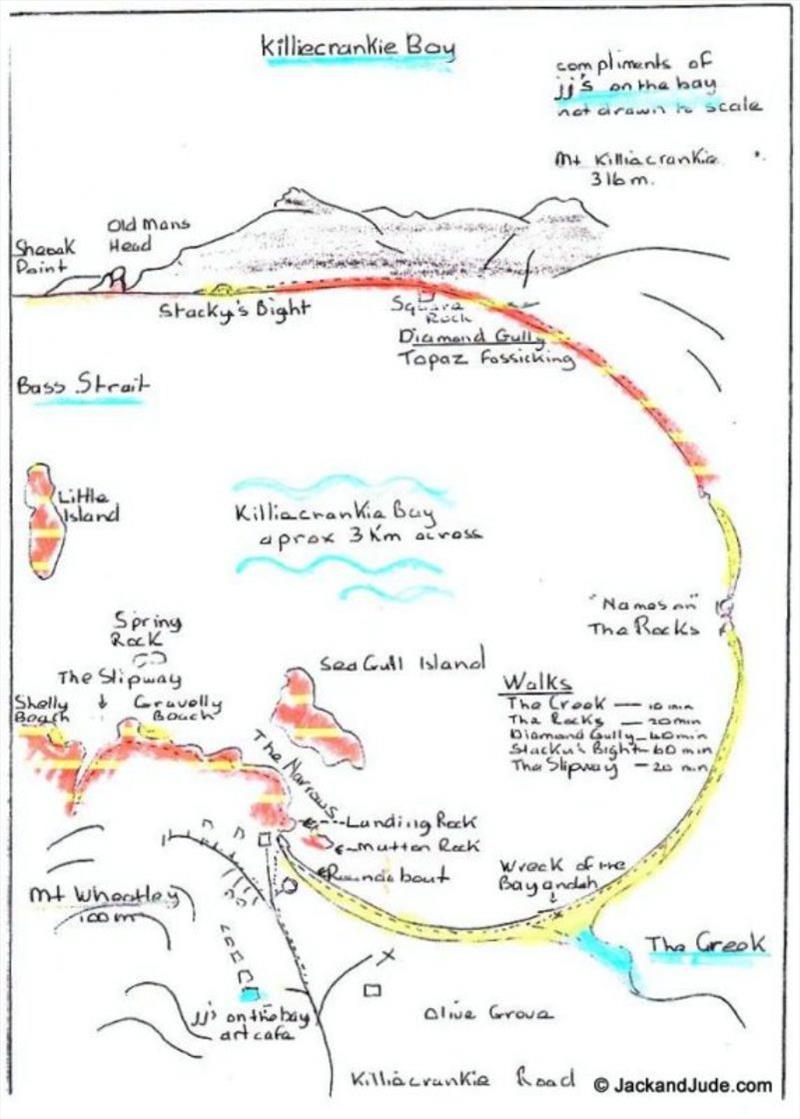 Killiecrankie Bay
compliments of
jj's on the bay
not drawn to scale
Mt Killiecrankie
316m.
Old Mans
Head
Sheoak
Point
Stacky's Bight
Square
Rock
Diamond Gully
Topaz Fossicking
Bass Strait
Little
Island
Killiecrankie Bay
aprox 3 Km across
"Names on"
The Rocks
Spring
Rock
The Slipway
Sea Gull Island
Shelly
Beach
Gravelly
Beach
Walks
The Creek — 10 min
The Rocks — 20 min
Diamond Gully — 40 min
Stacky's Bight — 60 min
The Slipway — 20 min
The Narrows
Landing Rock
Mutton Rock
Roundabout
Wreck of the
Mt Wheatley
100m
The Creek
jj's on the bay
art cafe
Olive Grove
Killiecrankie Road
© JackandJude.com